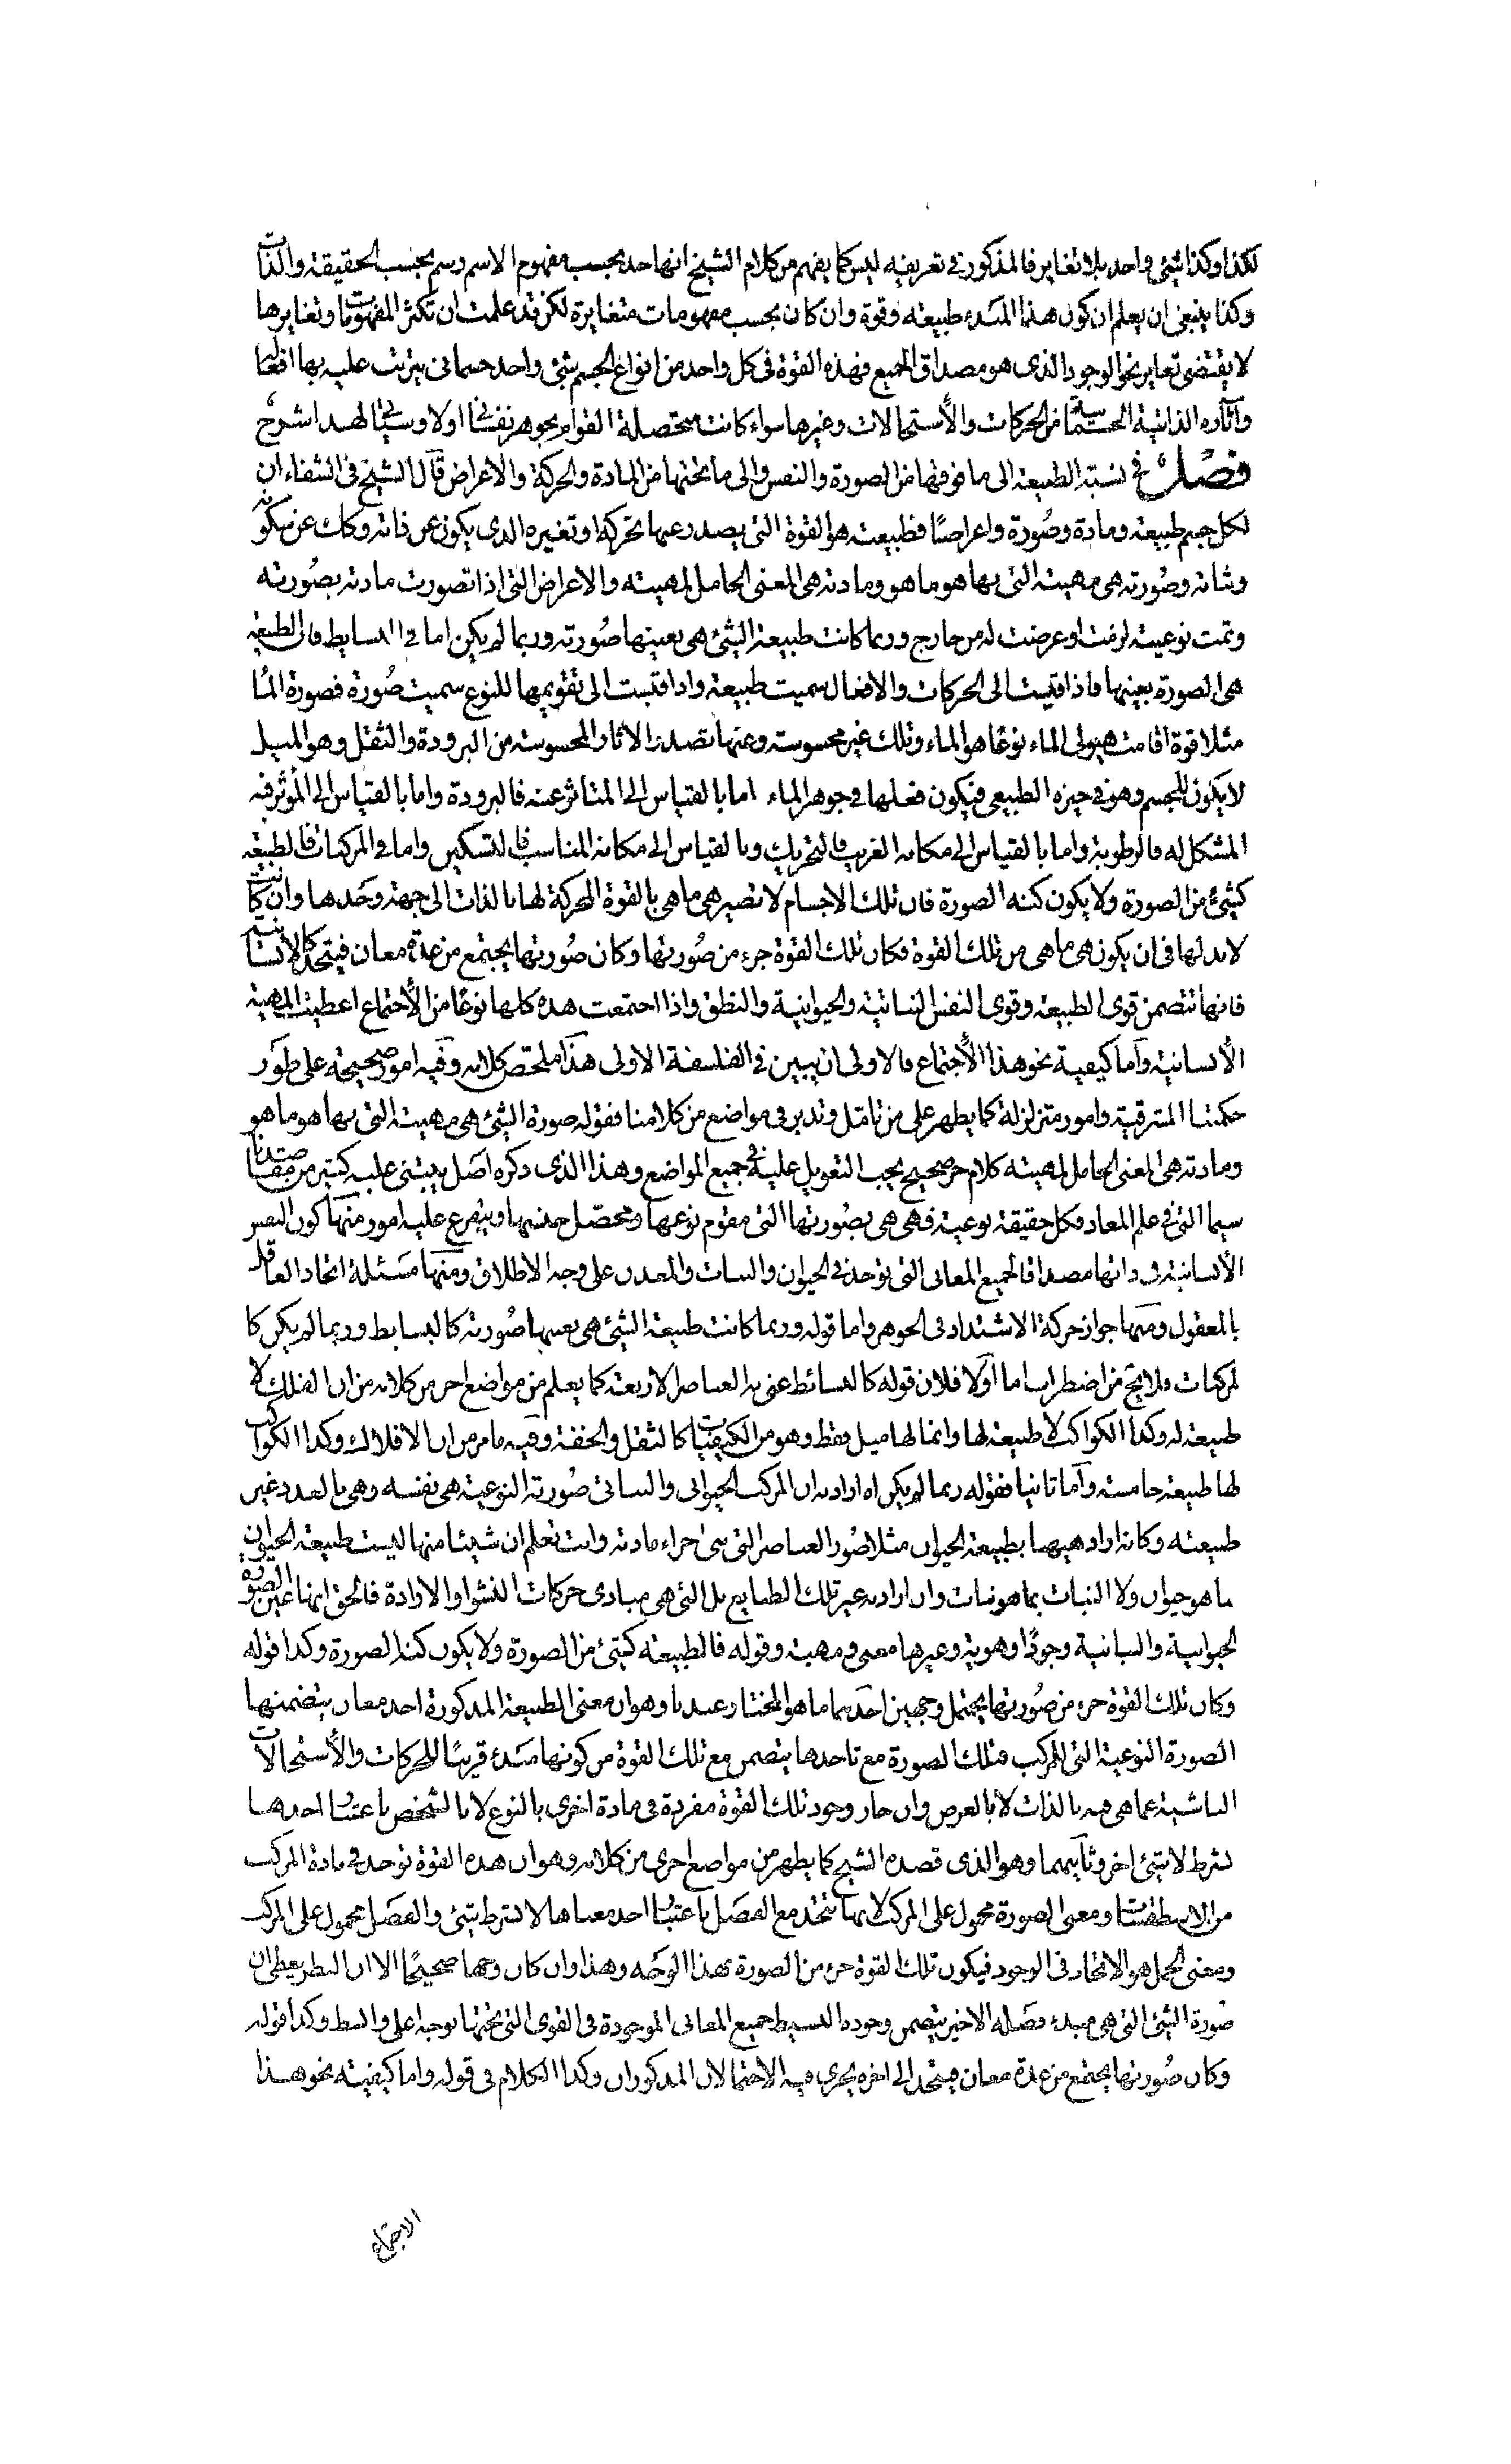 لكذا وكذا شئ واحد بلا تغاير فالمذكور في تعريفه ليس كما يفهم من كلام الشيخ انها حد بحسب مفهوم الاسم رسم بحسب الحقيقة والذات
وكذا ينبغى ان يعلم ان كون هذا المبدء طبيعة وقوة وان كان بحسب مفهومات متغايرة لكن قد علمت ان تكثر المفهومات وتغايرها
لا يقتضى تغاير نحو الوجود الذى هو مصداق الجميع فهذه القوة فى كل واحد من انواع الجسم شئ واحد جسمانى يترتب عليه بها افعالها
وآثاره الذاتية الجسمانية من الحركات والأستحالات وغيرها سواء كانت متحصلة القوام بجوهر نفسانى اولا وسياتى لهذا شرح
فصل فى نسبة الطبيعة الى ما فوقها من الصورة والنفس والى ما تحتها من المادة والحركة والاعراض قال الشيخ فى الشفاء ان
لكل جسم طبيعة ومادة وصورة واعراضا فطبيعته هو القوة التى يصدر عنها تحركه او تغيره الذى يكون عن ذاته وكك عن سكونه
وثباته وصورته هى مهيته التى بها هو ما هو ومادته هى المعنى الحامل لمهيته والاعراض التى اذا تصورت مادته بصورته
وتمت نوعيته لزمت او عرضت له من خارج وربما كانت طبيعة الشئ هى بعينها صورته وربما لم يكن اما فى البسايط فان الطبيعة
هى الصورة بعينها فاذا قيست الى الحركات والافعال سميت طبيعة واذا قيست الى تقويمها للنوع سميت صورة فصورة الماء
مثلا قوة اقامت هيولى الماء نوعا هو الماء وتلك غير محسوسة وعنها تصدر الاثار المحسوسة من البرودة والثقل وهو الميل
لا يكون للجسم وهو فى حيزه الطبيعى فيكون فعلها فى جوهر الماء اما بالقياس الى المتاثر عنه فالبرودة واما بالقياس الى المؤثر فيه
المشكل له فالرطوبة واما بالقياس الى مكانه الغريب فالتحريك وبالقياس الى مكانه المناسب فالتسكين واما فى المركبات فالطبيعة
كشئ من الصورة ولا يكون كنه الصورة فان تلك الاجسام لا تصير هى ما هى بالقوة المحركة لها بالذات الى جهة وحدها وان كانت
لابد لها فى ان يكون هى ما هى من تلك القوة فكان تلك القوة جزء من صورتها وكان صورتها يجتمع من عدة معان فيتحد كالانسانية
فانها تتضمن قوى الطبيعة وقوى النفس النباتية والحيوانية والنطق واذا اجتمعت هذه كلها نوعا من الأجتماع اعطيت المهية
الأنسانية واما كيفية نحو هذا الأجتماع فالاولى ان يبين فى الفلسفة الاولى هذا ملخص كلامه وفيه امور صحيحة على طور
حكمتنا المشرقية وامور متزلزلة كما يظهر على من تامل وتدبر فى مواضع من كلامنا فقوله صورة الشئ هى مهيته التى بها هو ما هو
ومادته هى المعنى الحامل لمهيته كلام حق صحيح يجب التعويل عليه فى جميع المواضع وهذا الذى ذكره اصل يبتنى عليه كثير من مقاصدنا
سيما التى فى علم المعاد فكل حقيقة نوعية فهى هى بصورتها التى مقوم نوعها ومحصل جنسها ويتفرع عليه امور منها كون النفس
الأنسانية فى ذاتها مصداقا لجميع المعانى التى توجد فى الحيوان والنبات والمعدن على وجه الاطلاق ومنها مسئلة اتحاد العاقل
بالمعقول ومنها جواز حركة الاشتداد فى الجوهر واما قوله وربما كانت طبيعة الشئ هى بعينها صورته كالبسايط وربما لم يكن كا
لمركبات فلا يخ من اضطراب اما اولا فلان قوله كالبسائط عنى به العناصر الاربعة كما يعلم من مواضع اخر من كلامه من ان الفلك لا
طبيعة له وكذا الكواكب لا طبيعة لها وانما لها ميل فقط وهو من الكيفيات كالثقل والخفة وفيه ما مر من ان الافلاك وكذا الكواكب
لها طبيعة خامسة واما ثانيا فقوله ربما لم يكن اه اراد به ان المركب الحيوانى والنباتى صورته النوعية هى نفسه وهى بالعدد غير
طبيعته وكانه اراد هيهنا بطبيعة الحيوان مثلا صور العناصر التى هى اجزاء مادته وانت تعلم ان شيئا منها ليست طبيعة الحيوان
بما هو حيوان ولا النبات بما هو نبات وان اراد به غير تلك الطبايع بل التى هى مبادى حركات النشو او الارادة فالحق انها عين الصورة
الحيوانية والنباتية وجودا وهوية وغيرها معنى ومهية وقوله فالطبيعة كشئ من الصورة ولا يكون كنه الصورة وكذا قوله
وكان تلك القوة جزء من صورتها يحتمل وجهين احدهما ما هو المختار عندنا وهو ان معنى الطبيعة المذكورة احد معان يتضمنها
الصورة النوعية التى للمركب فتلك الصورة مع تاحدها يتضمن مع تلك القوة من كونها مبدء قريبا للحركات والأستحالات
الناشية عما هى فيه بالذات لا بالعرض وان جاز وجود تلك القوة مفردة فى مادة اخرى بالنوع لا بالشخص باعتبار احدها
بشرط لا شئ اخر وثانيهما وهو الذى قصده الشيخ كما يظهر من مواضع اخرى من كلامه وهو ان هذه القوة توجد فى مادة المركب
من الاسطقسات ومعنى الصورة محمول على المركب لانها تتحد مع الفصل باعتبار احد معناها لا بشرط شئ والفصل محمول على المركب
ومعنى الحمل هو الاتحاد فى الوجود فيكون تلك القوة جزء من الصورة بهذا الوجه وهذا وان كان وجها صحيحا الا ان النظر يعطى ان
صورة الشئ التى هى مبدء فصله الاخير يتضمن وجوده البسيط جميع المعانى الموجودة فى القوى التى تحتها بوجه اعلى وابسط وكذا قوله
وكان صورتها يجتمع من عدة معان فيتحد الى اخره يجرى فيه الاحتمالان المذكوران وكذا الكلام فى قوله واما كيفية نحو هذا
الاجتماع